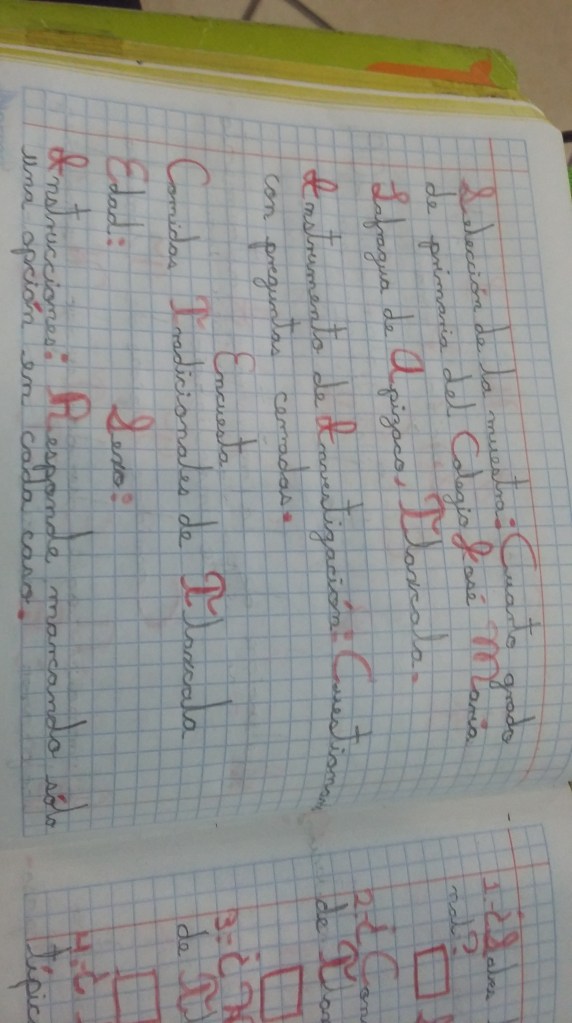 Selección de la muestra: Cuarto grado
de primaria del Colegio José María
Lafragua de Apizaco, Tlaxcala.
Instrumento de Investigación: Cuestionario
con preguntas cerradas.
Encuesta
Comidas Tradicionales de Tlaxcala
Edad: Sexo:
Instrucciones: Responde marcando sólo
una opción en cada caso.
1.¿Sabes
2.¿Con
de
3.¿
de
4.¿